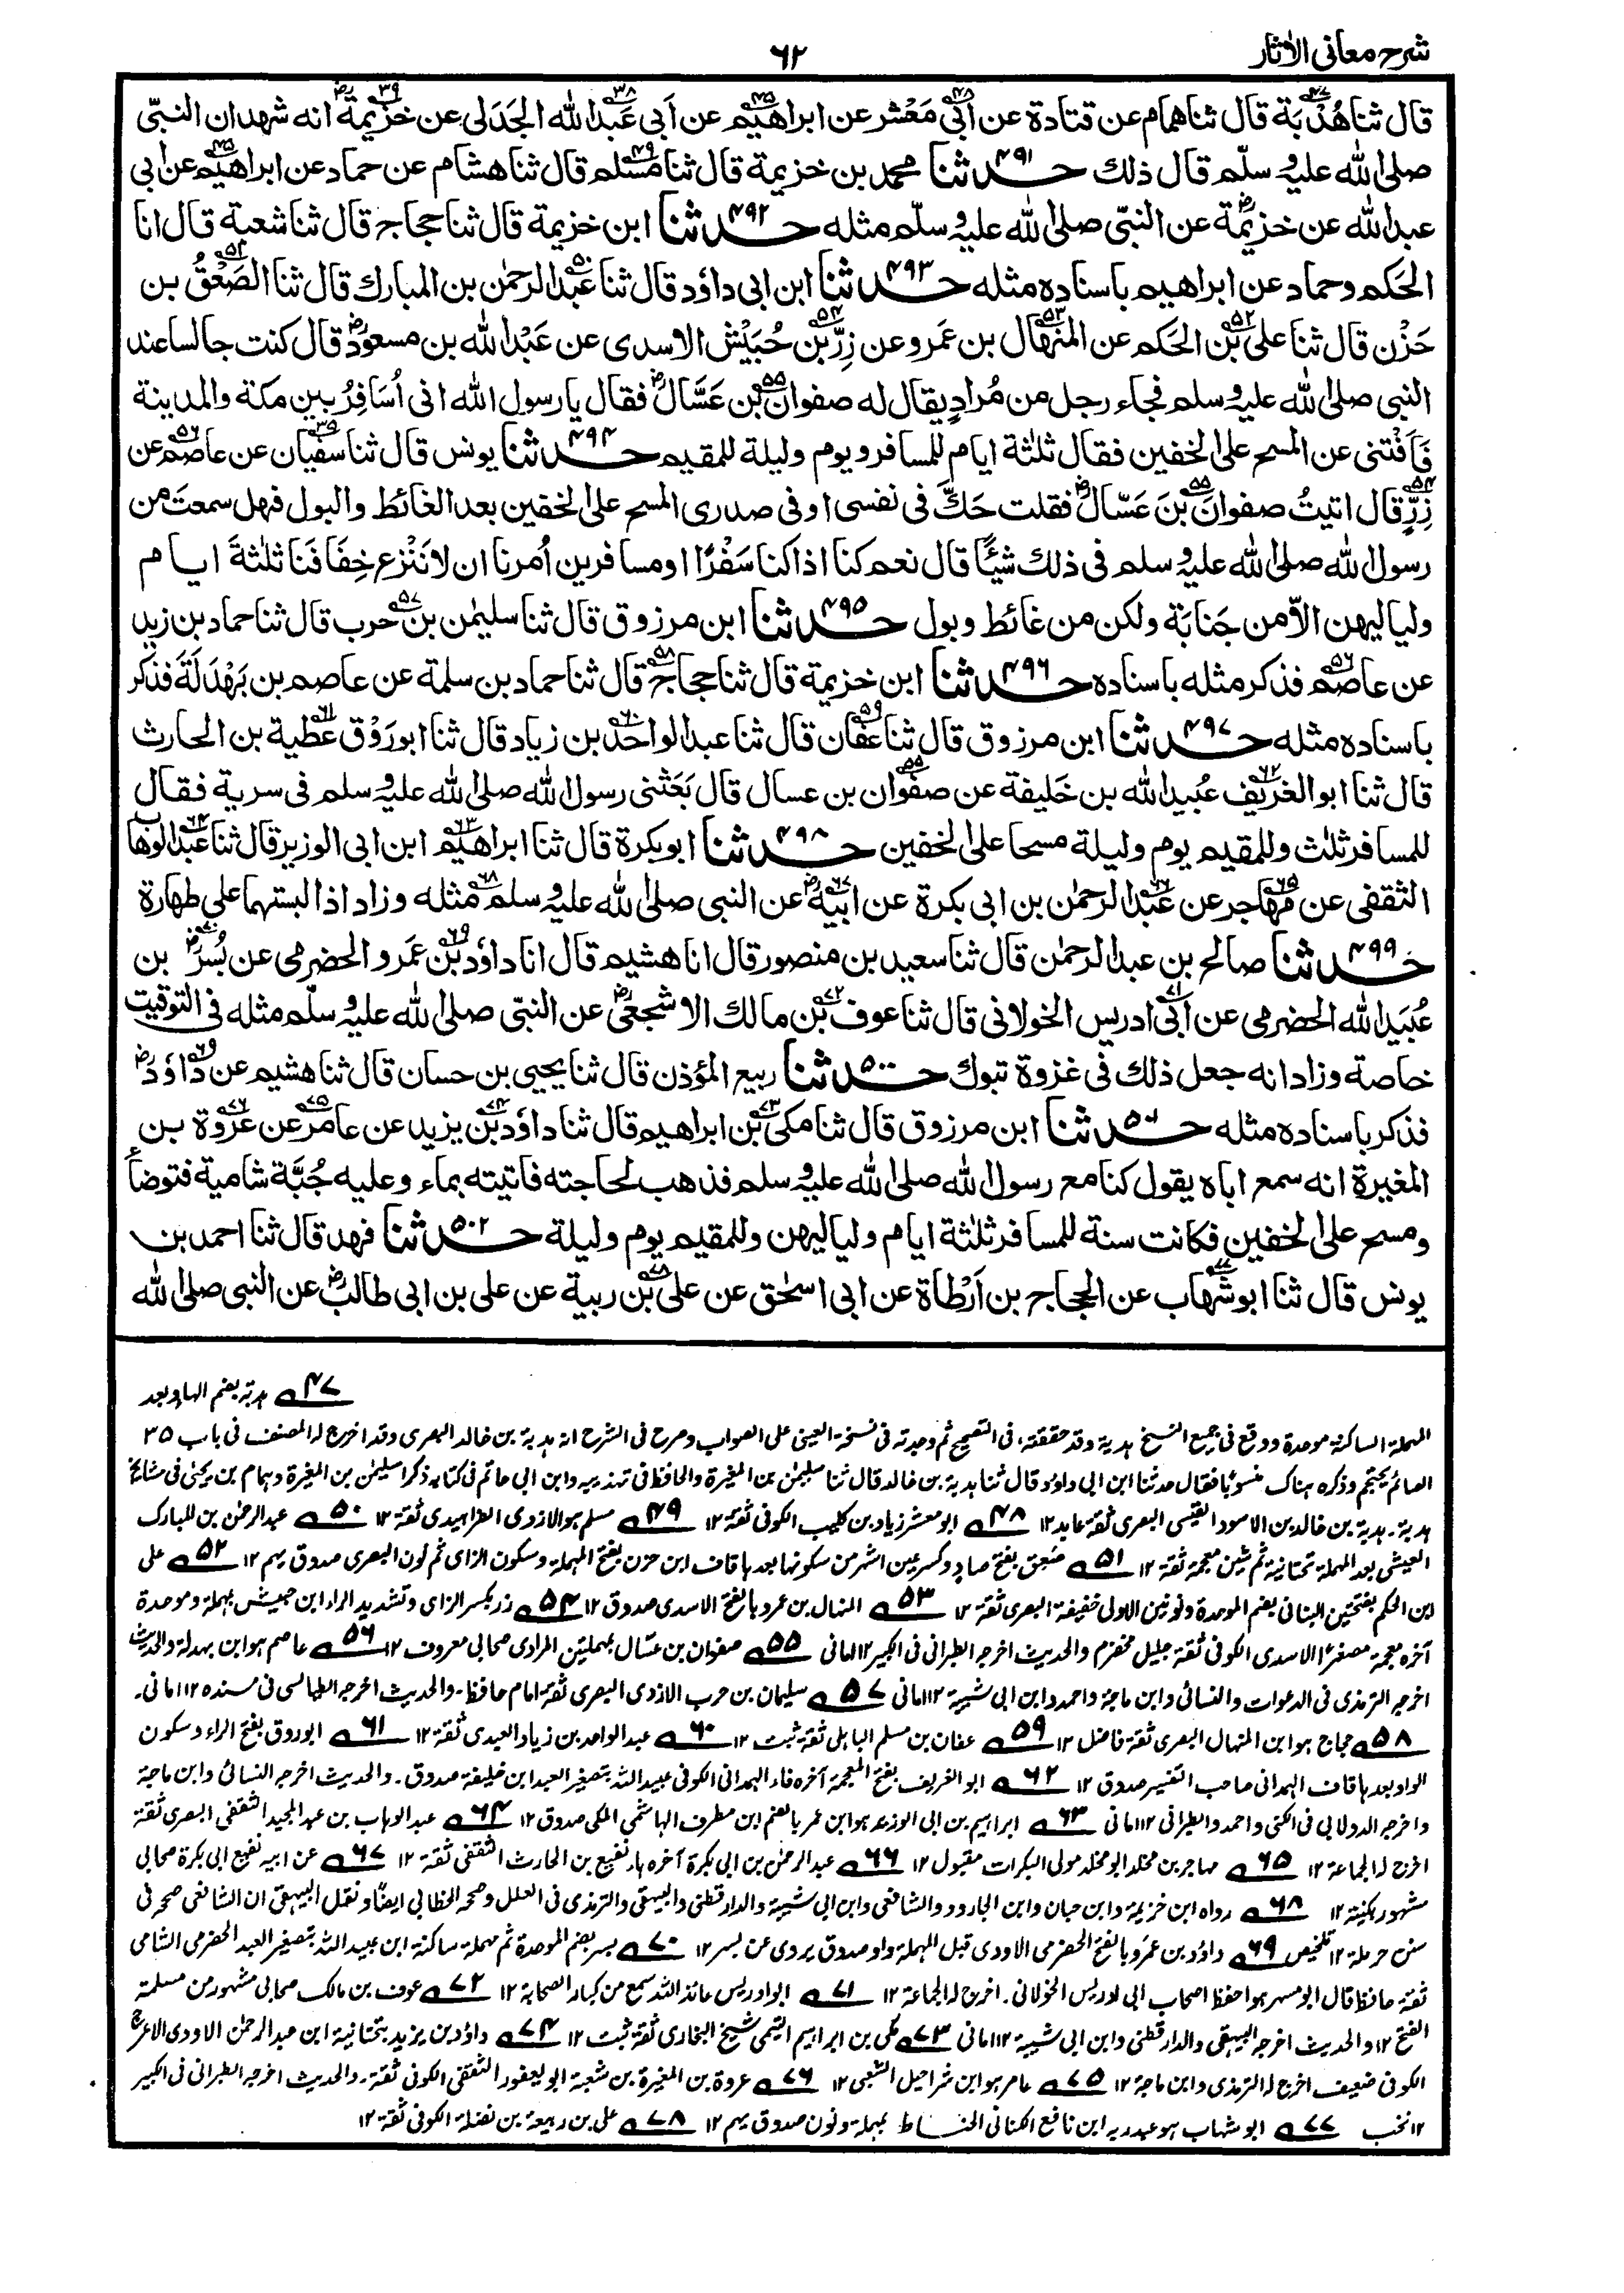 شرح معانی الآثار
٦٢
قال ثنا هُدْبَة قال ثنا همام عن قتادة عن اَبی مَعْشر عن ابراهیم عن اَبی عَبد الله الجَدَلی عن خزیمة انه شهد ان النبیّ
صلی الله علیه وسلّم قال ذلك ٤٩١ حدثنا محمد بن خزیمة قال ثنا مُسلم قال ثنا هشام عن حماد عن ابراهیم عن ابی
عبد الله عن خزیمة عن النبیّ صلی الله علیه وسلّم مثله ٤٩٢ حدثنا ابن خزیمة قال ثنا حجاج قال ثنا شعبة قال انا
الحَکم وحماد عن ابراهیم باسناده مثله ٤٩٣ حدثنا ابن ابی داوٗد قال ثنا عَبد الرحمٰن بن المبارك قال ثنا الصَعْقُ بن
حَزْن قال ثنا علی بن الحَکم عن المنهال بن عَمرو عن زِرِّ بن حُبَیْش الاسدی عن عَبْد الله بن مسعود قال کنت جالسا عند
النبی صلی الله علیه وسلم فجاء رجل من مُرادٍ یقال له صفوان بن عَسَّال فقال یا رسول الله انی اُسَافِرُ بین مکة والمدینة
فَاَفْتنی عن المسح علی الخفین فقال ثلٰثة ایام للمسافر ویوم ولیلة للمقیم ٤٩٤ حدثنا یونس قال ثنا سفیان عن عاصم عن
زِرٍّ قال اتیتُ صفوانَ بنَ عَسّال فقلت حَكَّ فی نفسی او فی صدری المسح علی الخفین بعد الغائط والبول فهل سمعتَ من
رسول الله صلی الله علیه وسلم فی ذلك شیئًا قال نعم کنا اذا کنا سَفْرًا او مسافرین اُمرنا ان لا نَنْزع خِفَافَنا ثلٰثةَ ایام
ولیالیهن الّا من جَنابَة ولکن من غائط وبول ٤٩٥ حدثنا ابن مرزوق قال ثنا سلیمٰن بن حرب قال ثنا حماد بن زید
عن عاصم فذکر مثله باسناده ٤٩٦ حدثنا ابن خزیمة قال ثنا حجاج قال ثنا حماد بن سلمة عن عاصم بن بَهْدَلَةَ فذکر
باسناده مثله ٤٩٧ حدثنا ابن مرزوق قال ثنا عفان قال ثنا عبد الواحد بن زیاد قال ثنا ابو رَوْق عطیة بن الحارث
قال ثنا ابو الغَرِیف عُبید الله بن خَلیفة عن صفوان بن عسال قال بَعَثنی رسول الله صلی الله علیه وسلم فی سریة فقال
للمسافر ثلٰث وللمقیم یوم ولیلة مسحا علی الخفین ٤٩٨ حدثنا ابو بکرة قال ثنا ابراهیم ابن ابی الوزیر قال ثنا عَبد الوهاب
الثقفی عن مُهاجر عن عَبْد الرحمٰن بن ابی بکرة عن ابیه عن النبی صلی الله علیه وسلم مثله وزاد اذا لبستهما علی طهارة
٤٩٩ حدثنا صالح بن عبد الرحمٰن قال ثنا سعید بن منصور قال انا هشیم قال انا داوٗد بن عَمرو الحضرمی عن بُسر بن
عُبَید الله الحضرمی عن اَبی ادریس الخولانی قال ثنا عوف بن مالك الاشجعی عن النبیّ صلی الله علیه وسلّم مثله فی التوقیت
خاصة وزاد انه جعل ذلك فی غزوة تبوك ٥٠٠ حدثنا ربیع المؤذن قال ثنا یحیی بن حسان قال ثنا هشیم عن داوٗد
فذکر باسناده مثله ٥٠١ حدثنا ابن مرزوق قال ثنا مکی بن ابراهیم قال ثنا داوٗد بن یزید عن عامر عن عروة بن
المغیرة انه سمع اباه یقول کنا مع رسول الله صلی الله علیه وسلم فذهب لحاجته فاتیته بماء وعلیه جُبَّة شامیة فتوضأ
ومسح علی الخفین فکانت سنة للمسافر ثلٰثة ایام ولیالیهن وللمقیم یوم ولیلة ٥٠٢ حدثنا فهد قال ثنا احمد بن
یونس قال ثنا ابو شهاب عن الحجاج بن اَرْطاة عن ابی اسحٰق عن علی بن ربیة عن علی بن ابی طالب عن النبی صلی الله
٤٧ ہدبة بضم الہاء وبعد
المہملة الساکنة موحدة ووقع فی جمیع النسخ ہدیة وقد حققته فی التصحیح ثم وجدته فی نسخة العینی علی الصواب وصرح فی الشرح انه ہدبة بن خالد البصری وقد اخرج له المصنف فی باب ٣٥
الصائم یحتجم وذکره ہناک منسوبًا فقال حدثنا ابن ابی داوٗد قال ثنا ہدبة بن خالد قال ثنا سلیمٰن بن المغیرة والحافظ فی تہذیبه وابن ابی حاتم فی کتابه ذکرا سلیمٰن بن المغیرة وہمام بن یحیٰی فی مشایخ
ہدبة ۔ ہدبة بن خالد بن الاسود القیسی البصری ثقة عابد ١٢ ٤٨ ابو معشر زیاد بن کلیب الکوفی ثقة ١٢ ٤٩ مسلم ہو الازدی الفراہیدی ثقة ١٢ ٥٠ عبد الرحمٰن بن المبارک
العیشی بعد المہملة تحتانیة ثم شین معجمة ثقة ١٢ ٥١ صَعِق بفتح صاد وکسر عین اشہر من سکونہا بعدہا قاف ابن حزن بفتح المہملة وسکون الزای ثم نون البصری صدوق یہم ١٢ ٥٢ علی
ابن الحکم بفتحتین البنانی بضم الموحدة ونونین الاولی خفیفة البصری ثقة ١٢ ٥٣ المنہال بن عمرو بالفتح الاسدی صدوق ١٢ ٥٤ زر بکسر الزای وتشدید الراء ابن حبیش بمہملة وموحدة
آخره معجمة مصغرًا الاسدی الکوفی ثقة جلیل مخضرم والحدیث اخرجه الطبرانی فی الکبیر ١٢ امانی ٥٥ صفوان بن عسّال بمہملتین المرادی صحابی معروف ١٢ ٥٦ عاصم ہو ابن بہدلة والحدیث
اخرجه الترمذی فی الدعوات والنسائی وابن ماجة واحمد وابن ابی شیبة ١٢ امانی ٥٧ سلیمان بن حرب الازدی البصری ثقة امام حافظ ۔ والحدیث اخرجه الطیالسی فی مسنده ١٢ امانی ۔
٥٨ حجاج ہو ابن المنہال البصری ثقة فاضل ١٢ ٥٩ عفان بن مسلم الباہلی ثقة ثبت ١٢ ٦٠ عبد الواحد بن زیاد العبدی ثقة ١٢ ٦١ ابو روق بفتح الراء وسکون
الواو بعدہا قاف الہمدانی صاحب التفسیر صدوق ١٢ ٦٢ ابو الغریف بفتح المعجمة آخره فاء الہمدانی الکوفی عبید الله بتصغیر العبد ابن خلیفة صدوق ۔ والحدیث اخرجه النسائی وابن ماجة
واخرجه الدولابی فی الکنی واحمد والطبرانی ١٢ امانی ٦٣ ابراہیم بن ابی الوزیر ہو ابن عمر بالضم ابن مطرف الہاشمی المکی صدوق ١٢ ٦٤ عبد الوہاب بن عبد المجید الثقفی البصری ثقة
اخرج له الجماعة ١٢ ٦٥ مہاجر بن مخلد ابو مخلد مولی البکرات مقبول ١٢ ٦٦ عبد الرحمٰن بن ابی بکرة آخره ہاء نفیع بن الحارث الثقفی ثقة ١٢ ٦٧ عن ابیه نفیع ابی بکرة صحابی
مشہور بکنیته ١٢ ٦٨ رواه ابن خزیمة وابن حبان وابن الجارود والشافعی وابن ابی شیبة والدارقطنی والبیہقی والترمذی فی العلل وصححه الخطابی ایضًا ونقل البیہقی ان الشافعی صححه فی
سنن حرملة ١٢ تلخیص ٦٩ داوٗد بن عمرو بالفتح الحضرمی الاودی قبل المہملة واو صدوق یروی عن بسر ١٢ ٧٠ بسر بضم الموحدة ثم مہملة ساکنة ابن عبید الله بتصغیر العبد الحضرمی الشامی
ثقة حافظ قال ابو مسہر ہو احفظ اصحاب ابی ادریس الخولانی ۔ اخرج له الجماعة ١٢ ٧١ ابو ادریس عائذ الله سمع من کبار الصحابة ١٢ ٧٢ عوف بن مالک صحابی مشہور من مسلمة
الفتح ١٢ والحدیث اخرجه البیہقی والدارقطنی وابن ابی شیبة ١٢ امانی ٧٣ مکی بن ابراہیم التیمی شیخ البخاری ثقة ثبت ١٢ ٧٤ داوٗد بن یزید بتحتانیة ابن عبد الرحمٰن الاودی الاعرج
الکوفی ضعیف اخرج له الترمذی وابن ماجة ١٢ ٧٥ عامر ہو ابن شراحیل الشعبی ١٢ ٧٦ عروة بن المغیرة بن شعبة ابو یعفور الثقفی الکوفی ثقة ۔ والحدیث اخرجه الطبرانی فی الکبیر
١٢ نخب ٧٧ ابو شہاب ہو عبد ربه ابن نافع الکنانی الحناط بمہملة ونون صدوق یہم ١٢ ٧٨ علی بن ربیعة بن نضلة الکوفی ثقة ١٢